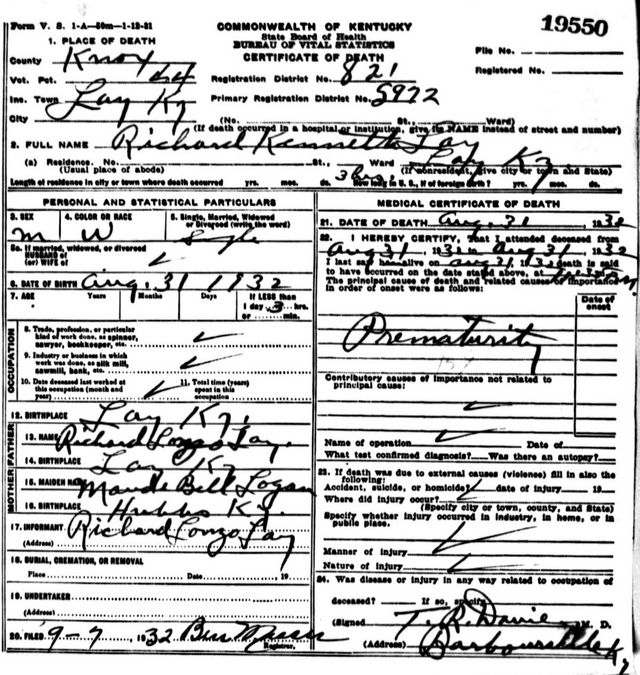 Form V. S. 1-A—50m—1-12-31
COMMONWEALTH OF KENTUCKY
19550
State Board of Health
BUREAU OF VITAL STATISTICS
CERTIFICATE OF DEATH
File No.
Registered No.
1. PLACE OF DEATH
County Knox
Vot. Pct.
Registration District No. 821
Inc. Town Lay Ky
Primary Registration District No. 5972
City (No. St., Ward)
(If death occurred in a hospital or institution, give its NAME instead of street and number)
2. FULL NAME Richard Kenneth Lay
(a) Residence. No. St., Ward Lay Ky
(Usual place of abode) (If nonresident, give city or town and State)
Length of residence in city or town where death occurred yrs. mos. ds. 3 hrs. How long in U. S., if of foreign birth? yrs. mos. ds.
PERSONAL AND STATISTICAL PARTICULARS
3. SEX 4. COLOR OR RACE 5. Single, Married, Widowed or Divorced (write the word)
m W Single
5a. If married, widowed, or divorced
HUSBAND of
(or) WIFE of
6. DATE OF BIRTH Aug. 31 1932
7. AGE Years Months Days If LESS than
1 day 3 hrs.
or min.
OCCUPATION
8. Trade, profession, or particular
kind of work done, as spinner,
sawyer, bookkeeper, etc.
9. Industry or business in which
work was done, as silk mill,
sawmill, bank, etc.
10. Date deceased last worked at
this occupation (month and
year)
11. Total time (years)
spent in this
occupation
12. BIRTHPLACE Lay Ky.
FATHER
13. NAME Richard Lonzo Lay.
14. BIRTHPLACE Lay Ky
MOTHER
15. MAIDEN NAME Maude Bell Logan
16. BIRTHPLACE Hubbs Ky.
17. INFORMANT Richard Lonzo Lay
(Address)
18. BURIAL, CREMATION, OR REMOVAL
Place Date , 19
19. UNDERTAKER
(Address)
20. FILED 9-7, 1932
Registrar.
MEDICAL CERTIFICATE OF DEATH
21. DATE OF DEATH Aug. 31 1932
22. I HEREBY CERTIFY, That I attended deceased from
Aug 31, 1932 to Aug 31, 1932
I last saw h alive on Aug 31, 1932 death is said
to have occurred on the date stated above, at
The principal cause of death and related causes of importance
in order of onset were as follows:
Date of
onset
Prematurity
Contributory causes of importance not related to
principal cause:
Name of operation Date of
What test confirmed diagnosis? Was there an autopsy?
23. If death was due to external causes (violence) fill in also the
following:
Accident, suicide, or homicide? date of injury 19
Where did injury occur?
(Specify city or town, county, and State)
Specify whether injury occurred in industry, in home, or in
public place.
Manner of injury
Nature of injury
24. Was disease or injury in any way related to occupation of
deceased? If so, specify
(Signed T. R. Davies M. D.
(Address) Barbourville Ky